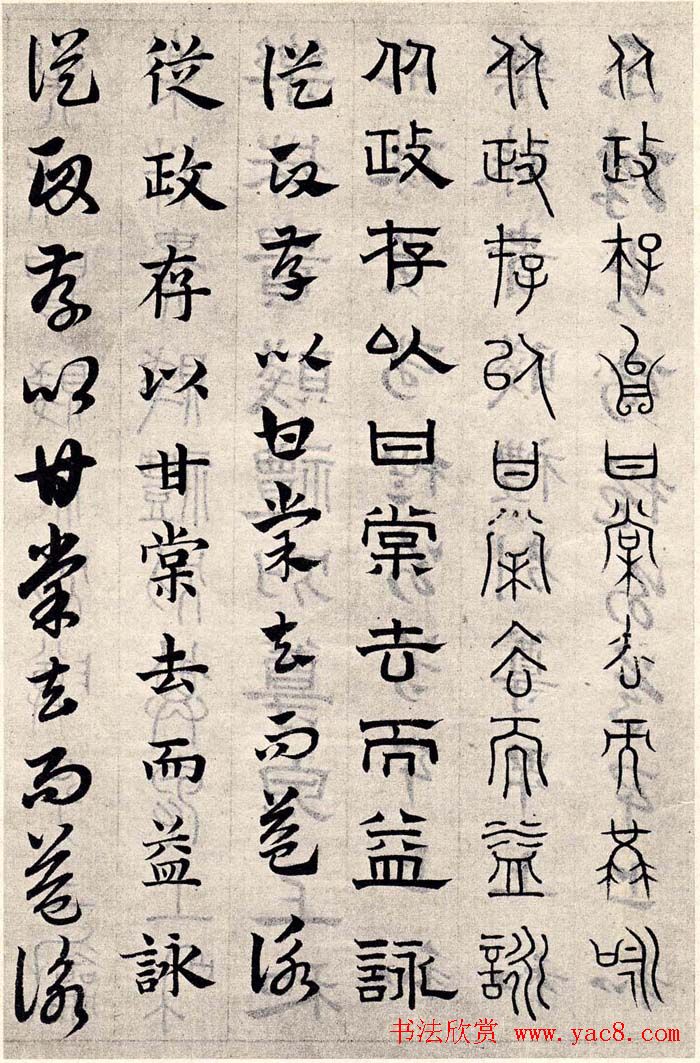 从政存以甘棠去而益詠
从政存以甘棠去而益詠
从政存以甘棠去而益詠
從政存以甘棠去而益詠
從政存以甘棠去而益詠
從政存以甘棠去而益詠
书法欣赏 www.yac8.com